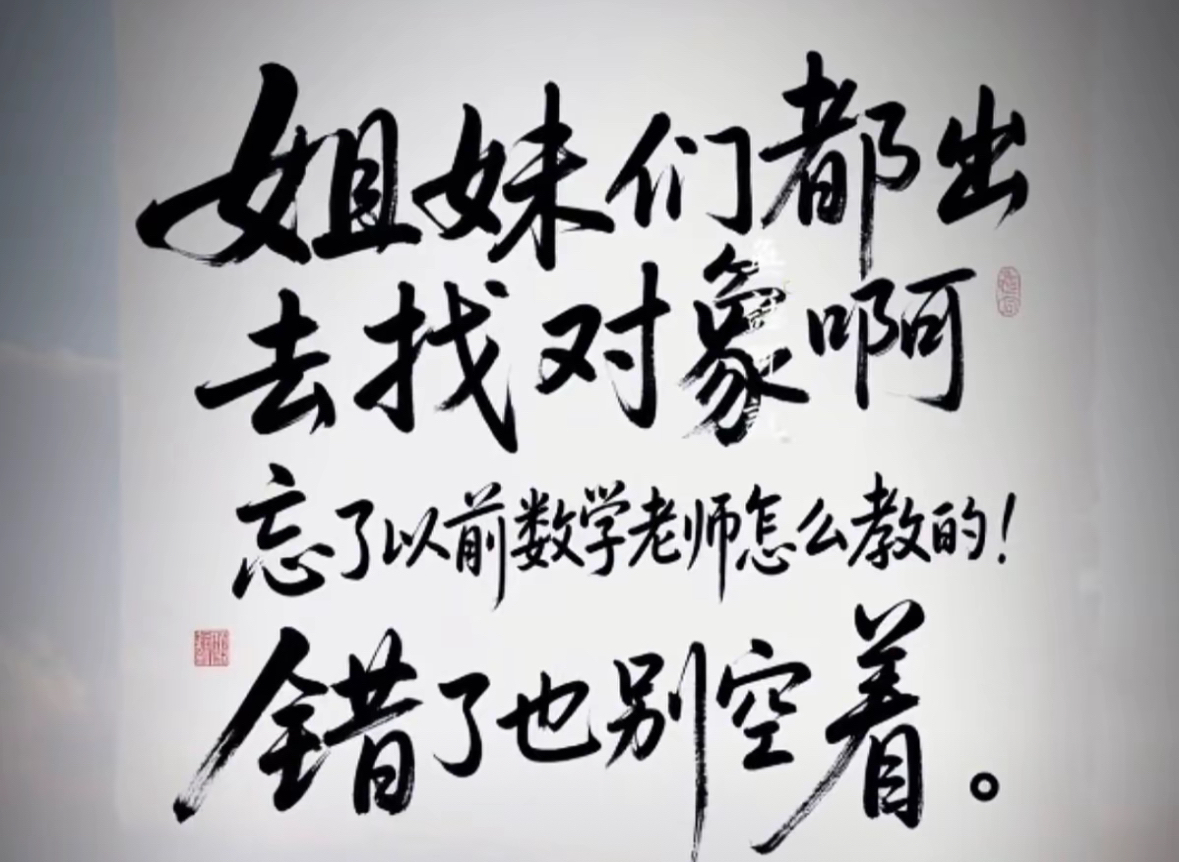 姐妹们都出
去找对象啊
忘了以前数学老师怎么教的！
错了也别空着。